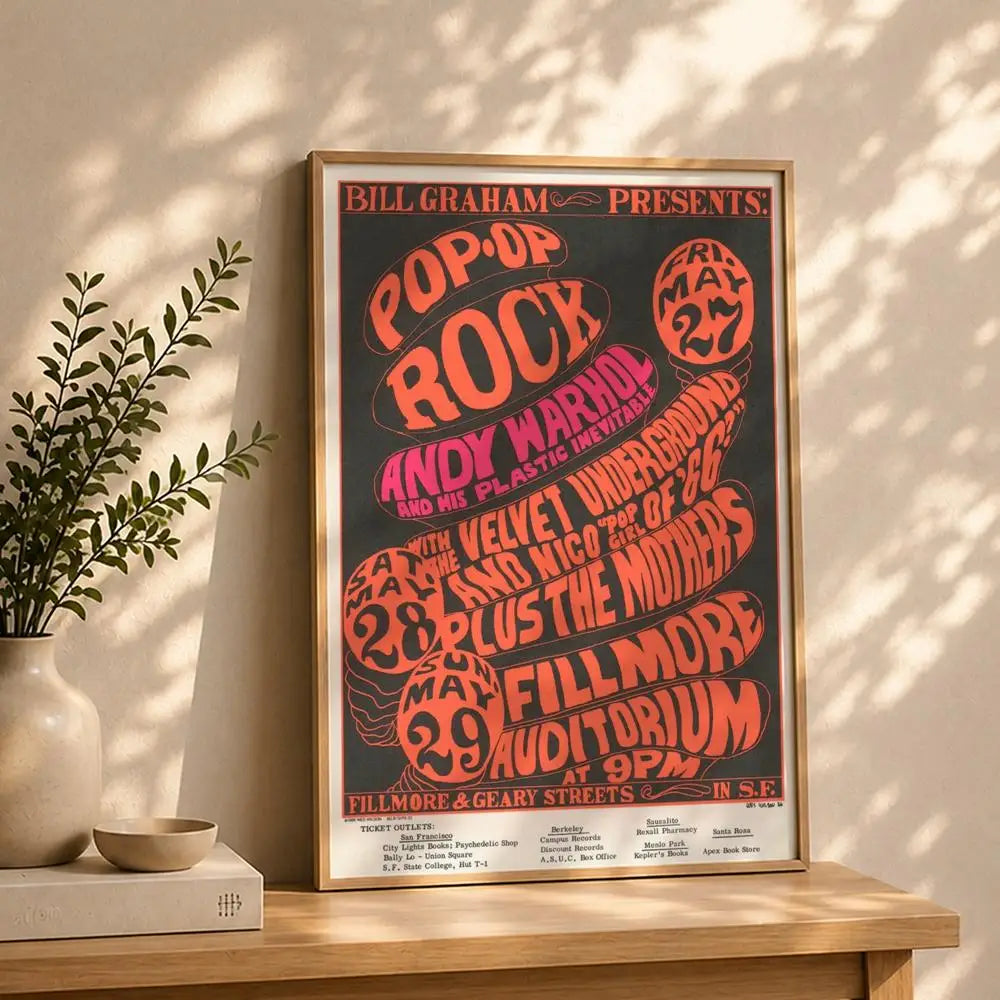 BILL GRAHAM PRESENTS:
POP·OP
ROCK
FRI.
MAY
27
ANDY WARHOL
AND HIS PLASTIC INEVITABLE
WITH THE VELVET UNDERGROUND
AND NICO "POP GIRL OF '66"
PLUS THE MOTHERS
SAT
MAY
28
SUN
MAY
29
FILLMORE
AUDITORIUM
AT 9PM
FILLMORE & GEARY STREETS IN S.F.
TICKET OUTLETS:
San Francisco
City Lights Books; Psychedelic Shop
Bally Lo - Union Square
S.F. State College, Hut T-1
Berkeley
Campus Records
Discount Records
A.S.U.C. Box Office
Sausalito
Rexall Pharmacy
Menlo Park
Kepler's Books
Santa Rosa
Apex Book Store